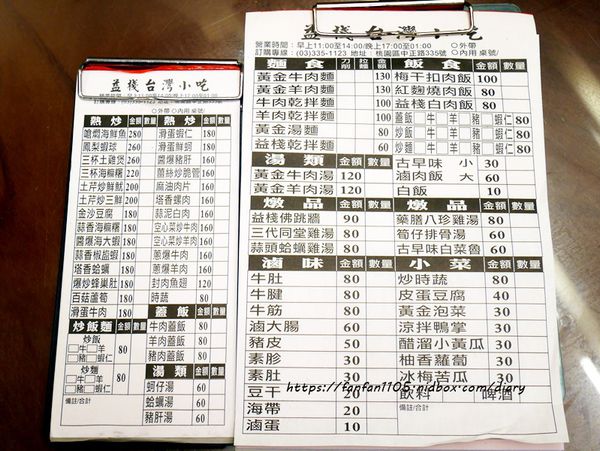 益棧台灣小吃
熱炒 金額 數量
嗆燜炒海鮮魚 280
鳳梨蝦球 260
三杯土雞煲 260
三杯海瘺糬 220
土芹炒鮮魷 180
土芹炒三鮮 180
金沙豆腐 180
蒜香海瘺糬 180
醬爆海大蝦 180
蒜香椒鹽蝦 180
塔香蛤蠣 180
爆炒蜂巢肚 180
百菇蘆筍 180
滑蛋牛肉 180
炒飯麵 金額 數量
炒飯
□牛□羊
□豬□蝦仁 80
炒麵
□牛□羊
□豬□蝦仁 80
備註/合計
熱炒 金額 數量
滑蛋蝦仁 160
滑蛋鮮蚵 160
醬爆豬肝 160
薑絲炒脆管 160
麻油肉片 160
塔香螺肉 160
蒜泥白肉 160
空心菜炒牛肉 160
空心菜炒羊肉 160
蔥爆牛肉 160
蔥爆羊肉 160
封肉魚翅 120
時蔬 80
蓋飯 金額 數量
牛肉蓋飯 80
羊肉蓋飯 80
豬肉蓋飯 80
湯類 金額 數量
蚵仔湯 60
蛤蠣湯 60
豬肝湯 60
益棧台灣小吃
營業時間：早上11:00至14:00/晚上17:00至01:00 ○外帶
訂購專線：(03)335-1123 地址：桃園區中正路335號 ○內用 桌號/
麵食 刀削 拉麵 金額 數量
黃金牛肉麵 130
黃金羊肉麵 130
牛肉乾拌麵 100
羊肉乾拌麵 100
黃金湯麵 80
益棧乾拌麵 60
湯類 金額 數量
黃金牛肉湯 120
黃金羊肉湯 120
燉品 金額 數量
益棧佛跳牆 90
三代同堂雞湯 80
蒜頭蛤蠣雞湯 80
滷味 金額 數量
牛肚 80
牛腱 80
牛筋 80
滷大腸 60
豬皮 50
素胗 30
素肚 30
豆干 20
海帶 20
滷蛋 10
飯食 金額 數量
梅干扣肉飯 100
紅麴燒肉飯 80
益棧白肉飯 80
蓋飯 牛 羊 豬 蝦仁 80
炒飯 牛 羊 豬 蝦仁 80
炒麵 牛 羊 豬 蝦仁 80
古早味 小 30
滷肉飯 大 60
白飯 10
燉品 金額 數量
藥膳八珍雞湯 80
筍仔排骨湯 80
古早味白菜魯 60
小菜 金額 數量
炒時蔬 80
皮蛋豆腐 40
黃金泡菜 30
涼拌鴨掌 30
醋溜小黃瓜 30
柚香蘿蔔 30
冰梅苦瓜 30
飲料 啤酒
備註/合計
https://fanfan1105.pixbox.com/diary